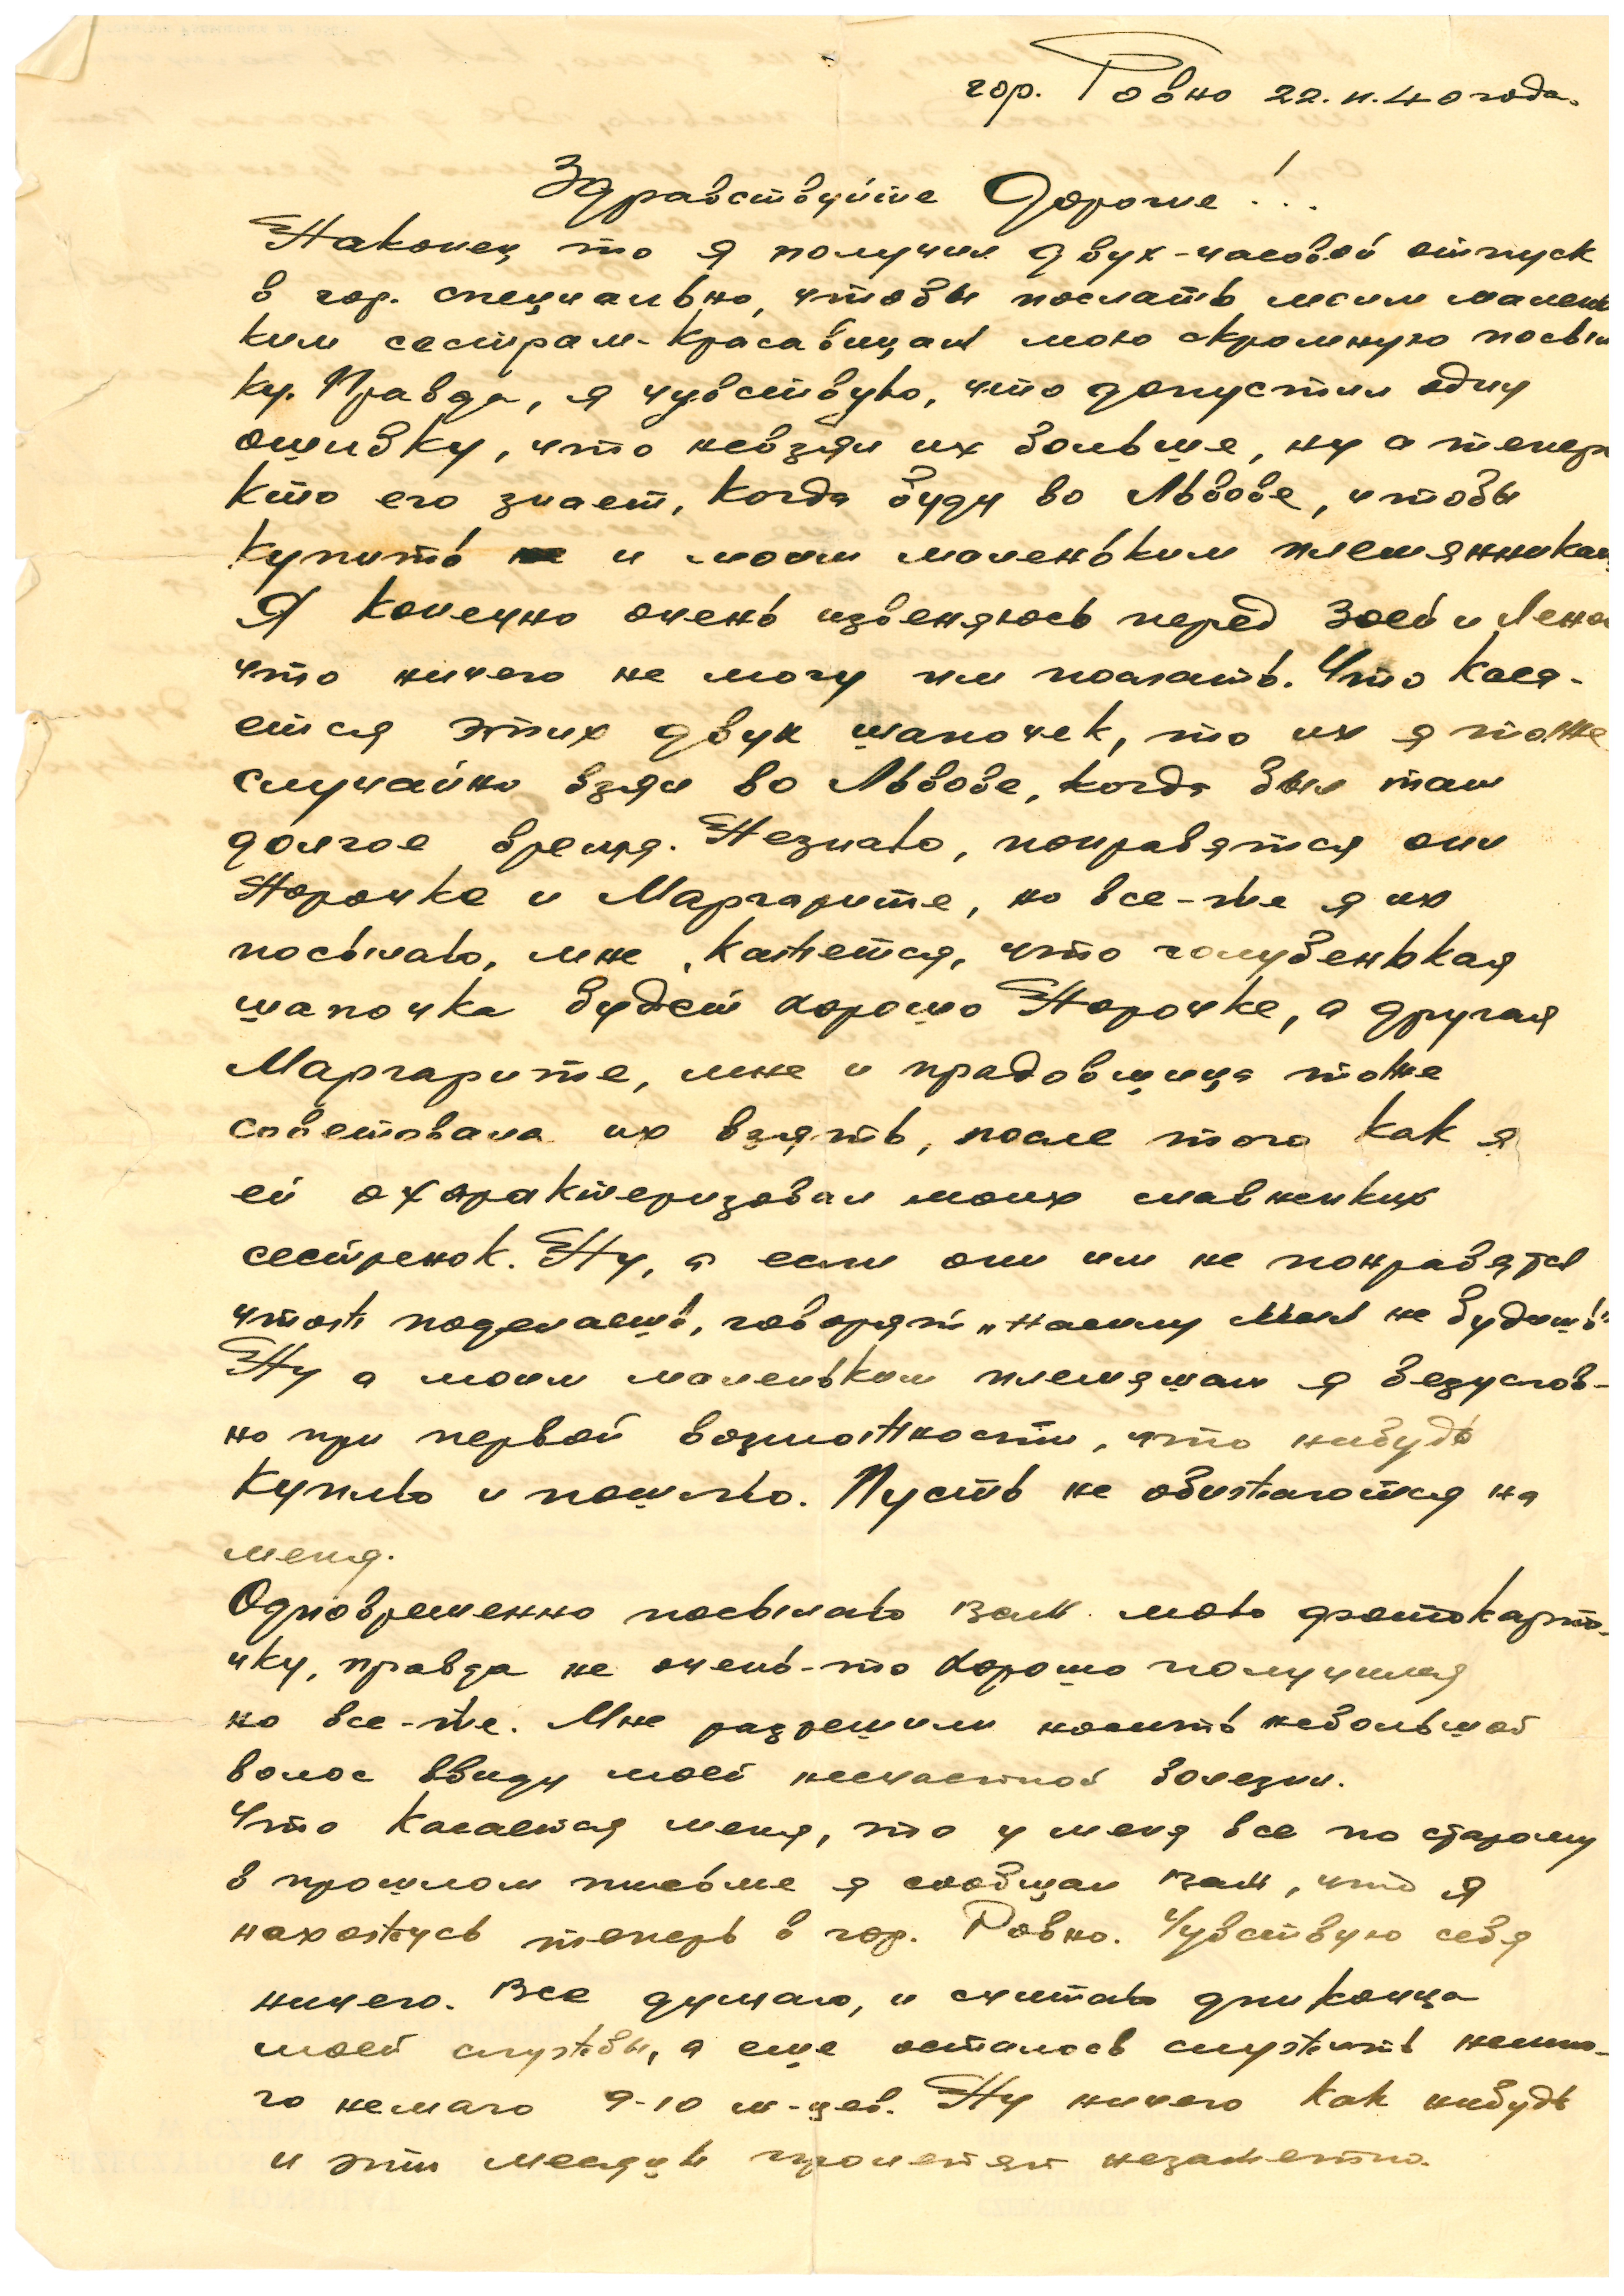 гор. Ровно 22.II.40 года.
Здравствуйте Дорогие!..
Наконец то я получил двух-часовой отпуск
в гор. специально, чтобы послать моим малень
ким сестрам-красавицам мою скромную посыл
ку. Правда, я чувствую, что допустил одну
ошибку, что невзял их больше, ну а тепер
кто его знает, когда буду во Львове, чтобы
купить и моим маленьким племянникам
Я конечно очень извеняюсь перед Зоей и Лено
что ничего не могу им послать. Что каса-
ется этих двух шапочек, то их я тоже
случайно взял во Львове, когда был там
долгое время. Незнаю, понравятся они
Норочке и Маргарите, но все-же я их
посылаю, мне кажется, что голубенькая
шапочка будет хорошо Норочке, а другая
Маргарите, мне и прадовщица тоже
советовала их взять, после того как я
ей охарактеризовал моих славненких
сестренок. Ну, а если они им не понравятся
чтож поделаешь, говорят „насилу мил не будешь"
Ну а моим маленьким племяшам я безуслов-
но при первой возможности, что нибудь
куплю и пошлю. Пусть не обижаются на
меня.
Одновременно посылаю вам мою фотокарто-
чку, правда не очень-то хорошо получился
но все-же. Мне разрешили носить небольшой
волос ввиду моей несчастной болезни.
Что касается меня, то у меня все по старому
в прошлом письме я сообщал вам, что я
нахожусь теперь в гор. Ровно. Чувствую себя
ничего. Все думаю, и считаю дни конца
моей службы, а еще осталось служить немно-
го немало 9-10 м-цев. Ну ничего как нибудь
и эти месяцы пролетят незаметно.